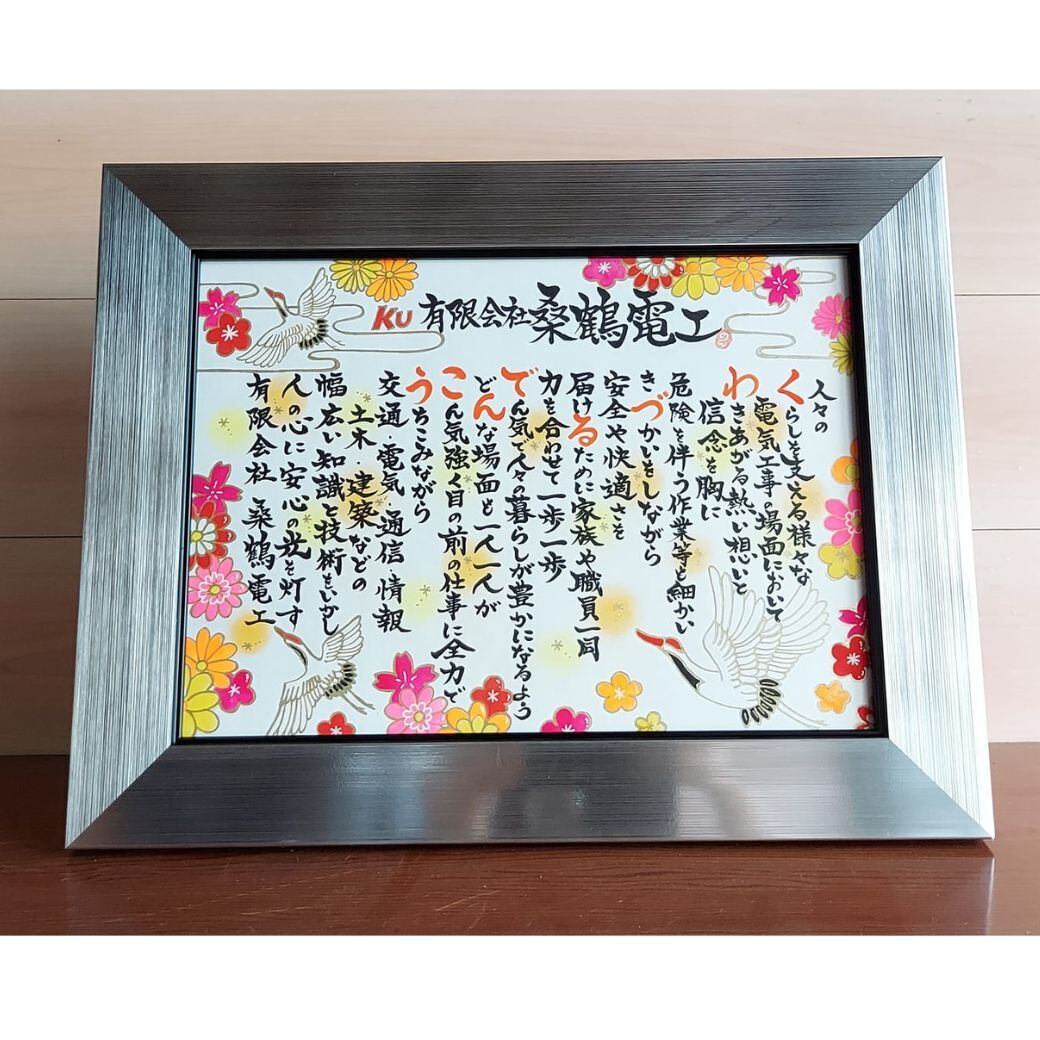 KU 有限会社桑鶴電工
人々の
くらしを支える様々な
電気工事の場面において
わきあがる熱い想いと
信念を胸に
危険を伴う作業等も細かい
きづかいをしながら
安全や快適さを
届けるために家族や職員一同
力を合わせて一歩一歩
でん気で人々の暮らしが豊かになるよう
どんな場面も一人一人が
こん気強く目の前の仕事に全力で
うちこみながら
交通・電気・通信・情報
土木・建築などの
幅広い知識と技術をいかし
人の心に安心の光を灯す
有限会社 桑鶴電工